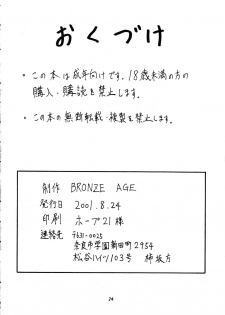 おくづけ
・この本は成年向けです。18歳未満の方の
購入・購読を禁止します。
・この本の無断転載・複製を禁止します。
制作 BRONZE AGE
発行日 2001.8.24
印刷 ホープ21様
連絡先 〒631-0025
奈良市学園新田町2954
松谷ハイツ103号 柿坂方
24